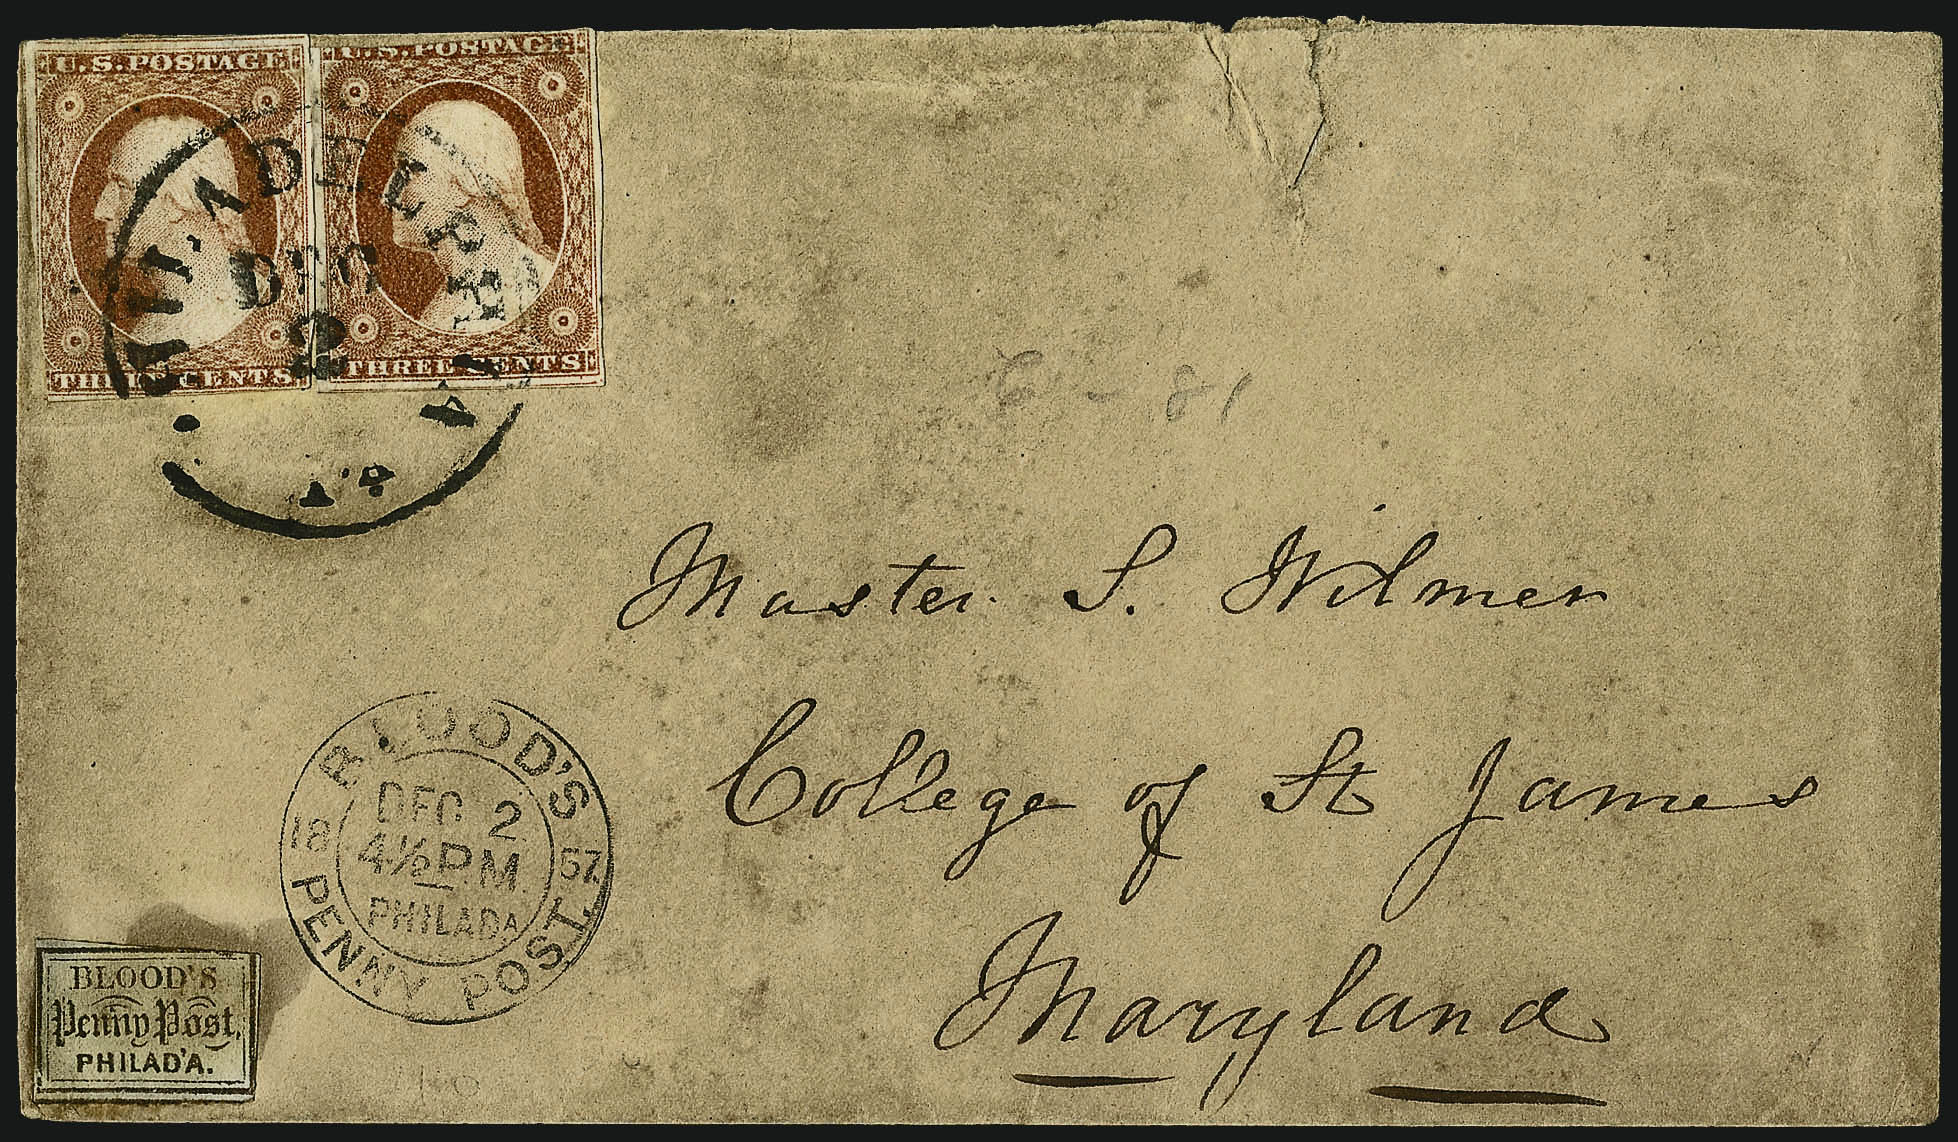 U.S. POSTAGE
THREE CENTS
U.S. POSTAGE
THREE CENTS
PHILADELPHIA
DEC
2
Pa.
Master S. Wilmer
College of St James
Maryland
BLOOD'S
PENNY POST
18 57.
DEC 2
4½ P.M.
PHILADA
BLOOD'S
Penny Post,
PHILAD'A.